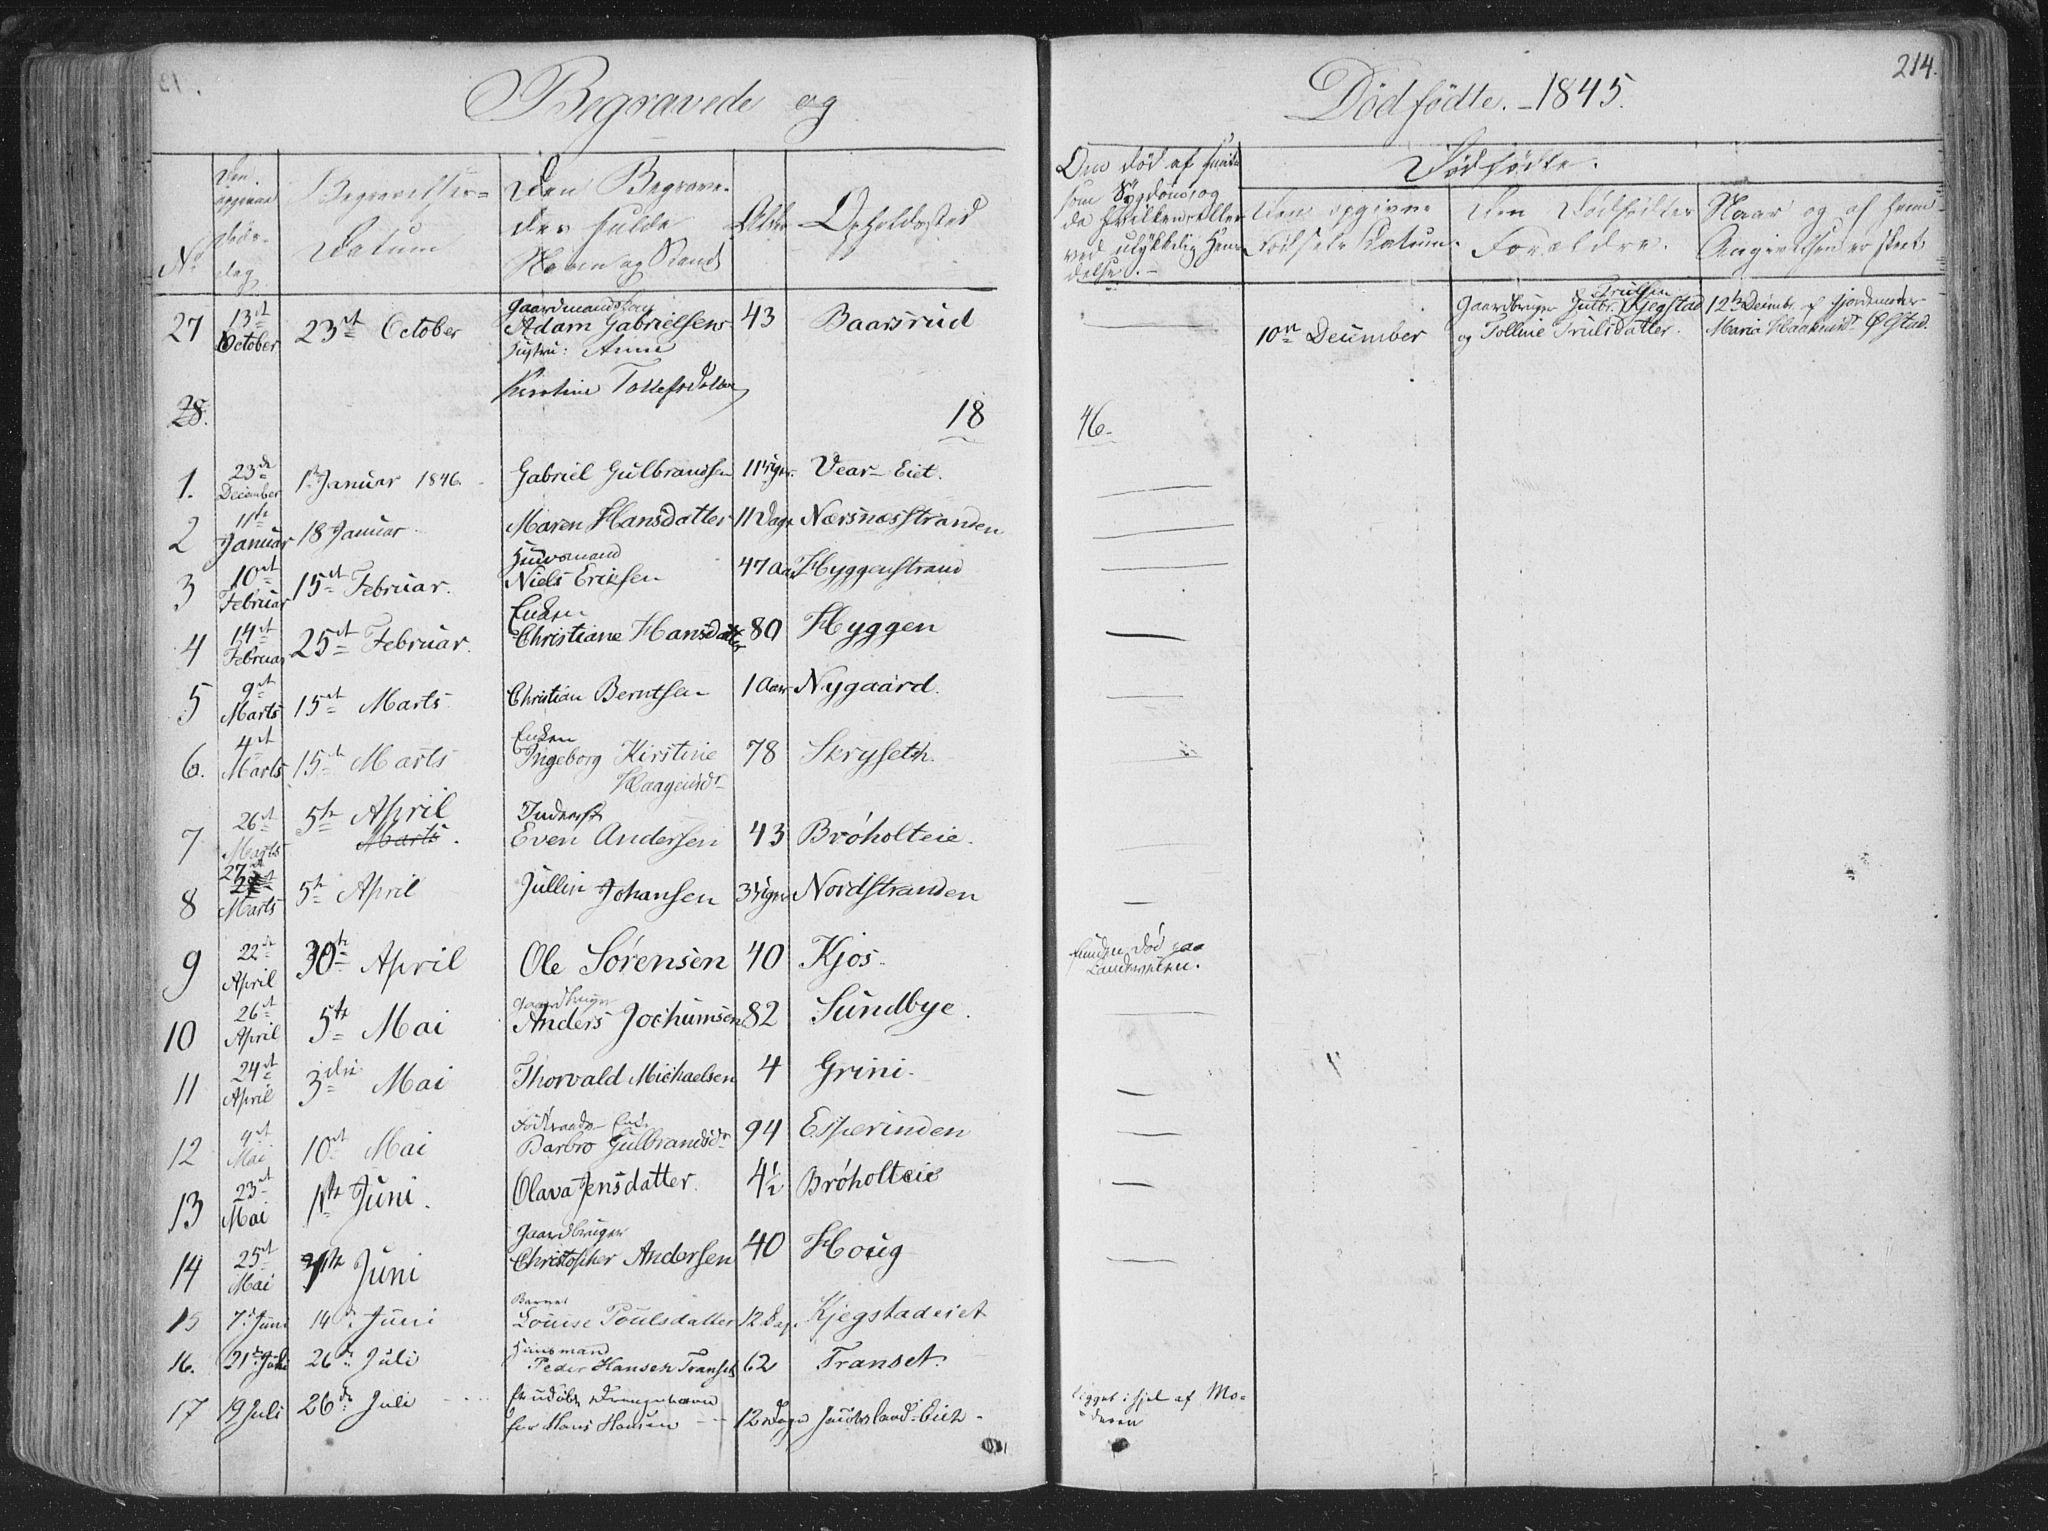 Begravede og
Dödfödte. - 1845.
214.
No
Den opgivne Döds-dag
Begravelses-Datum
Den Begravedes fulde Navn og Stand
Alder
Opholdssted
Om död af
som Sygdom, og
da hvilken, eller
ved ulykkelig Hen-
delse. -
Dödfödte.
Den opgivne Födsels Datum.
Den Dödfödtes Forældre.
Naar og af hvem Angivelsen er skeet.
27 13de October 23de October Gaardmand Adam Gabrielsens Hustru: Anne Kirstine Tollefsdatter 43 Baarsrud
10de December Gaardbruger Gulbr. Trulsen Kjegstad og Tolline Trulsdatter. 12te Decembr. af Gjordemoder Maria Haakensdr Øgstad.
28. 18 46.
1. 23de December 1te Januar 1846. Gabriel Gulbrandsen 11 Uger. Vear-Eiet.
2 11te Januar 18 Januar. Maren Hansdatter 11 Dage Nærsnæsstranden
3 10de Februar 15de Februar. Huusmand Niels Eriksen 47 Aar Hyggenstrand
4 14de Februar 25de Februar. Enken Christiane Hansdatter 80 Hyggen
5 9de Marts 15de Marts Christian Berntsen 1 Aar Nygaard.
6. 4de Marts 15de Marts Enken Ingeborg Kirstine Haagensdr 78 Skryseth.
7 26de Marts 5te April Marts. Inderst Even Andersen 43 Bröholteie.
8 27de Marts 5te April Jullin Johansen 3 Uger Nordstranden
9 22de April 30te April Ole Sörensen 40 Kjos. Funden död paa Landeveien.
10 26de April 5te Mai Gaardbruger Anders Jochumsen 82 Sundbye.
11 24de April 3die Mai Thorvald Michaelsen 4 Grini.
12 4de Mai 10de Mai Födraads Enke Barbro Gulbrandsdr 94 Esperinden
13 23de Mai 1te Juni. Olava Jensdatter. 4½ Bröholteie
14 25de Mai 1te Juni Gaardbruger Christopher Andersen 40 Houg
15 7de Juni 14de Juni Barnet Louise Poulsdatter 12 Dag. Kjegstadeiet
16. 21de Juli 26de Juli Huusmand Peder Hansen Transet 62 Transet.
17 19 Juli 26de Juli Et udöbt Drengebarn for Hans Hansen 12 Dage Jacobsland-Eie. ligget ihjel af Mo-
deren